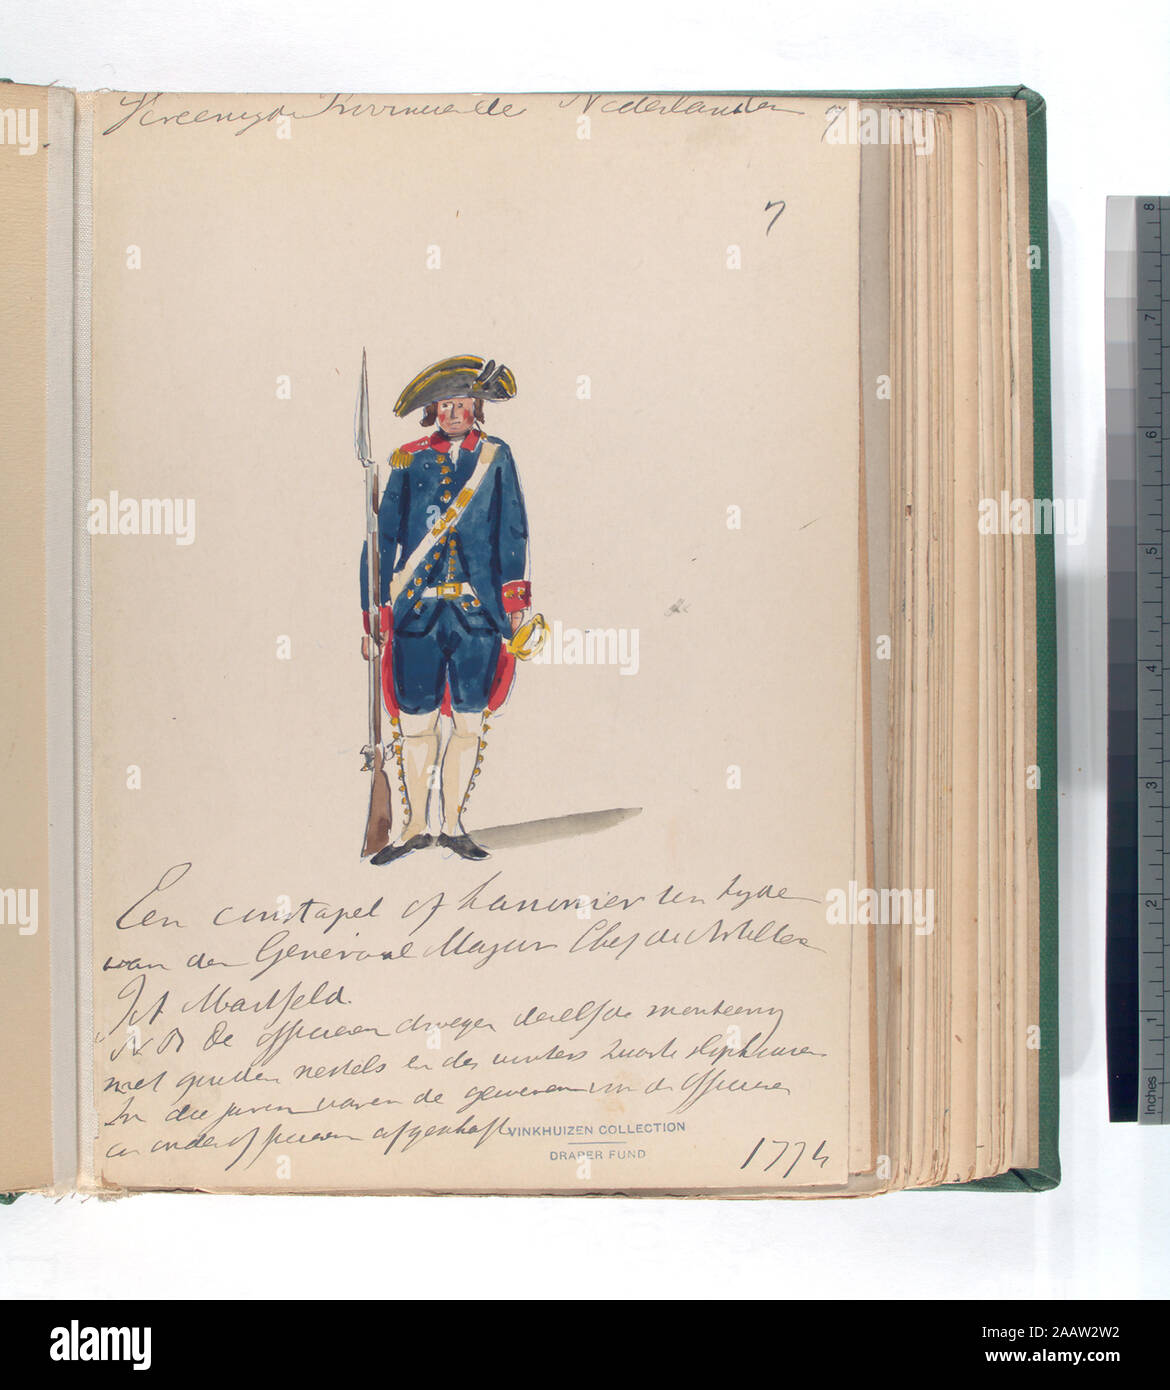 Vereenigde Provincien der Nederlanden 7
7
Een constapel of kanonnier ten tyde
van den Generaal Majoor Chef der Artillerie
Martfeld.
NB De officieren droegen dezelfde monteering
met gouden nestels en des winters zwarte slopkousen
In die jaren waren de geweren van de officieren
en onderofficieren afgeschaft
VINKHUIZEN COLLECTION
DRAPER FUND
1774
8
7
6
5
4
3
2
1
Inches
alamy
alamy
Image ID: 2AAW2W2
www.alamy.com